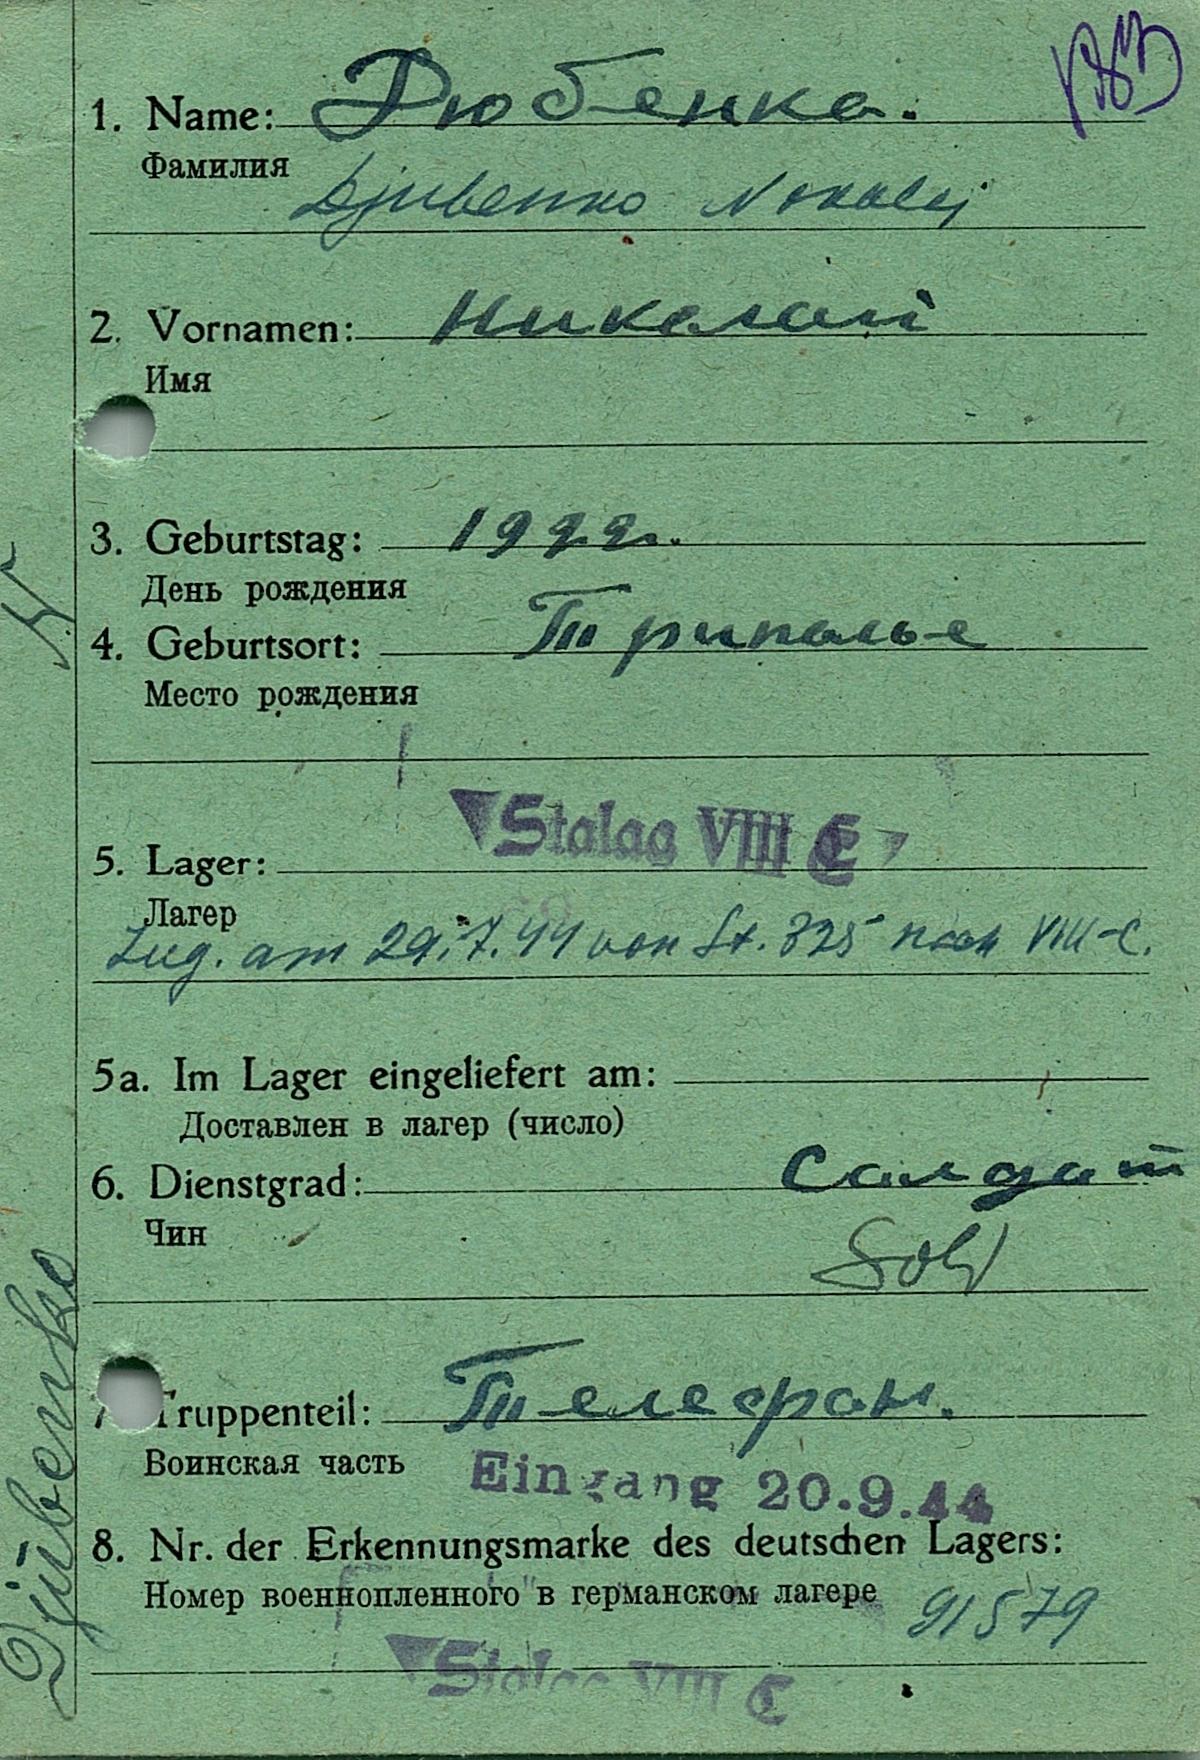 1. Name: Дюбенка.
Фамилия
Djubenko Nokolej
2. Vornamen: Николай
Имя
3. Geburtstag: 1922г.
День рождения
4. Geburtsort: Триполье
Место рождения
Stalag VIII C
5. Lager:
Лагер
Zug. am 29.7.44 von St. 325 nach VIII-C.
5a. Im Lager eingeliefert am:
Доставлен в лагер (число)
6. Dienstgrad: Салдат
Чин
Sold
Truppenteil: Телефон.
Воинская часть
Eingang 20.9.44
8. Nr. der Erkennungsmarke des deutschen Lagers:
Номер военнопленного в германском лагере 91579
Stalag VIII C
Djübenko N.